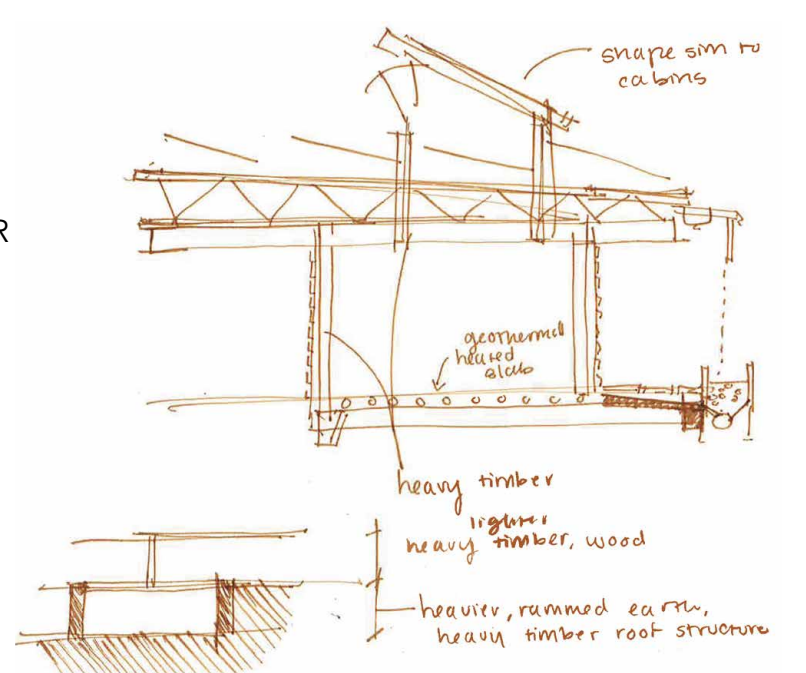 shape sim to
cabins
R
geothermal
heated
slab
heavy timber
lighter
heavy timber, wood
heavier, rammed earth,
heavy timber roof structure